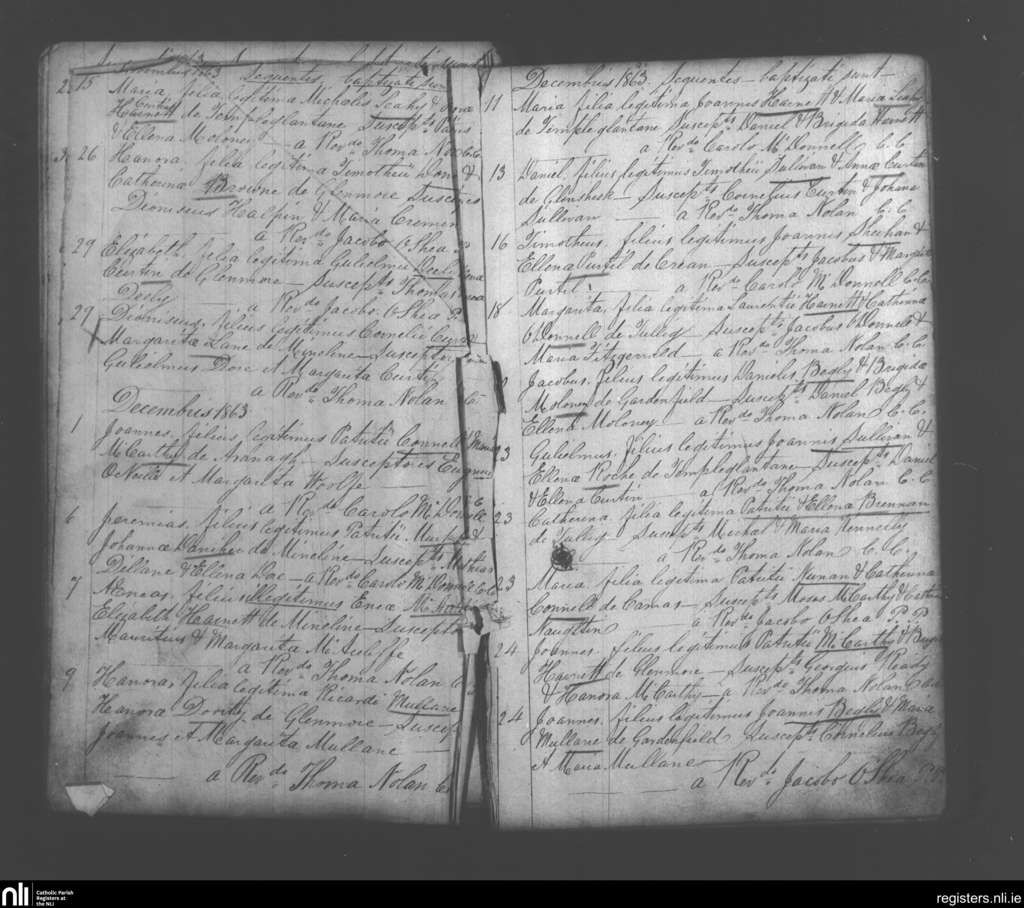 Novembris 1863 Sequentes baptizati sunt
25 Maria, filia legitima Michaelis Leahy &
Harnett de Templeglantane Suscepts
& Ellena Moloney — a Revdo Thoma Nolan C.C.
26 Hanora, filia legitima Timothei &
Catherina Browne de Glenmore Susceptores
Dionisius Halpin & Maria Cremen
a Revdo Jacobo O'Shea
29 Elizabeth, filia legitima Gulielmi Deely
Curtin de Glenmore — Suscepts Thomas
Deely — a Revdo Jacobo O'Shea P.
29 Dionisius, filius legitimus Cornelii
Margarita Lane de Mineline — Susceptores
Gulielmus Dore et Margarita Curtin
a Revdo Thoma Nolan C.
Decembris 1863
1 Joannes, filius legitimus Patritii Connell &
McCarthy de — Susceptores Eugenius
O'Neill et Margarita Woolfe
a Revdo Carolo McDonell C.C.
6 Jeremias, filius legitimus Patritii &
Johannæ Danihee de Mineline — Suscepts
Dillane & Ellena — a Revdo Carolo McDonnell C.C.
7 Æneas, filius illegitimus Eneæ
Elizabeth Harnett de Mineline — Suscepts
Mauritius & Margarita McAuliffe
a Revdo Thoma Nolan C.
9 Hanora, filia legitima Ricardi Mullane
Hanora de Glenmore — Suscepts
Joannes et Margarita Mullane —
a Revdo Thoma Nolan C.C.
Decembris 1863 Sequentes — baptizati sunt —
11 Maria filia legitima Joannes Harnett & Maria Leahy
de Templeglantane Suscepts Daniel & Brigida Harnett
a Revdo Carolo McDonnell C.C.
13 Daniel, filius legitimus Timotheii Sullivan & Annæ Curtin
de Glenshesk — Suscepts Cornelius Curtin & Johana
Sullivan — a Revdo Thoma Nolan C.C.
16 Timotheus, filius legitimus Joannis Sheehan &
Ellena Purtil de Crean — Suscepts Jacobus & Margarita
Purtil — a Revdo Carolo McDonnell C.C.
18 Margarita, filia legitima Laurentii Harnett & Catherina
O'Donnell de Tulliq — Suscepts Jacobus O'Donnell &
Maria Fitzgerald — a Revdo Thoma Nolan C.C.
Jacobus, filius legitimus Danielis Begly & Brigida
Moloney de Gardenfield — Suscepts Daniel Begly &
Ellena Moloney — a Revdo Thoma Nolan C.C.
23 Gulielmus, filius legitimus Joannis Sullivan &
Ellena Roche de Templeglantane — Suscepts Daniel
& Ellena Curtin — a Revdo Thoma Nolan C.C.
23 Catherina filia legitima Patritii & Ellena Brennan
de Tulliq — Suscepts Michal & Maria Kennelly
a Revdo Thoma Nolan C.C.
23 Maria, filia legitima Patritii Nunan & Catherina
Connell de Camas — Suscepts Moses McCarthy &
Naughtin — a Revdo Jacobo O'Shea P.P.
24 Joannes, filius legitimus Patritii McCarthy &
Harnett de Glenmore — Suscepts Georgius Ready
& Hanora McCarthy — a Revdo Thoma Nolan C.C.
24 Joannes, filius legitimus Joannes Begly & Maria
Mullane de Gardenfield Suscepts Cornelius Begly
et Maria Mullane —
a Revdo Jacobo O'Shea P.P.
nli Catholic Parish
Registers at
the NLI
registers.nli.ie